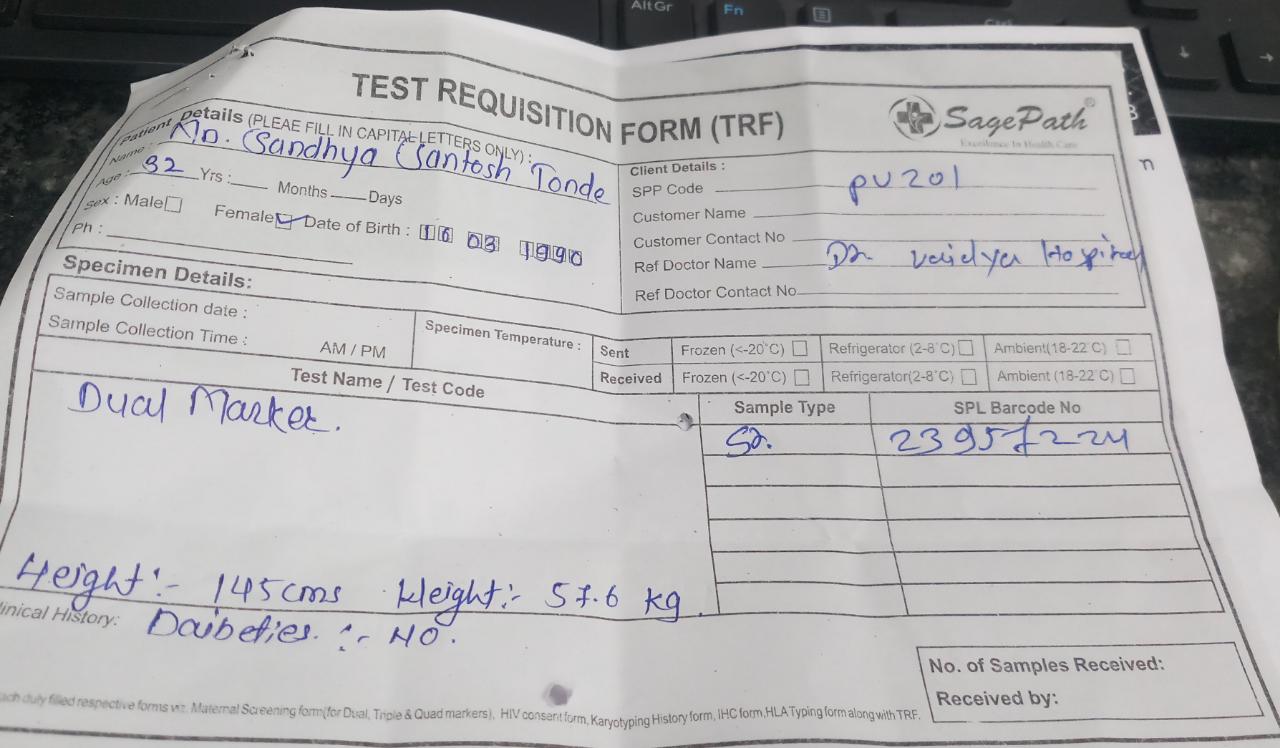 AltGr
Fn
TEST REQUISITION FORM (TRF)
SagePath®
Excellence In Health Care
Patient Details (PLEAE FILL IN CAPITAL LETTERS ONLY) :
Name : Sandhya Santosh Tonde
Age : 32 Yrs : Months Days
Sex : Male Female Date of Birth : 16 03 1990
Ph :
Client Details :
SPP Code PU201
Customer Name
Customer Contact No
Ref Doctor Name Dr. Vaidya Hospital
Ref Doctor Contact No
Specimen Details:
Sample Collection date :
Sample Collection Time : AM / PM
Specimen Temperature :
Sent Frozen (<-20°C) Refrigerator (2-8°C) Ambient(18-22°C)
Received Frozen (<-20°C) Refrigerator(2-8°C) Ambient (18-22°C)
Test Name / Test Code
Sample Type SPL Barcode No
Dual Marker.
Sr. 23957224
Height :- 145cms Weight :- 57.6 kg.
linical History: Daibeties :- NO.
No. of Samples Received:
Received by:
ach duly filled respective forms viz. Maternal Screening form(for Dual, Triple & Quad markers), HIV consent form, Karyotyping History form, IHC form,HLA Typing form along with TRF.